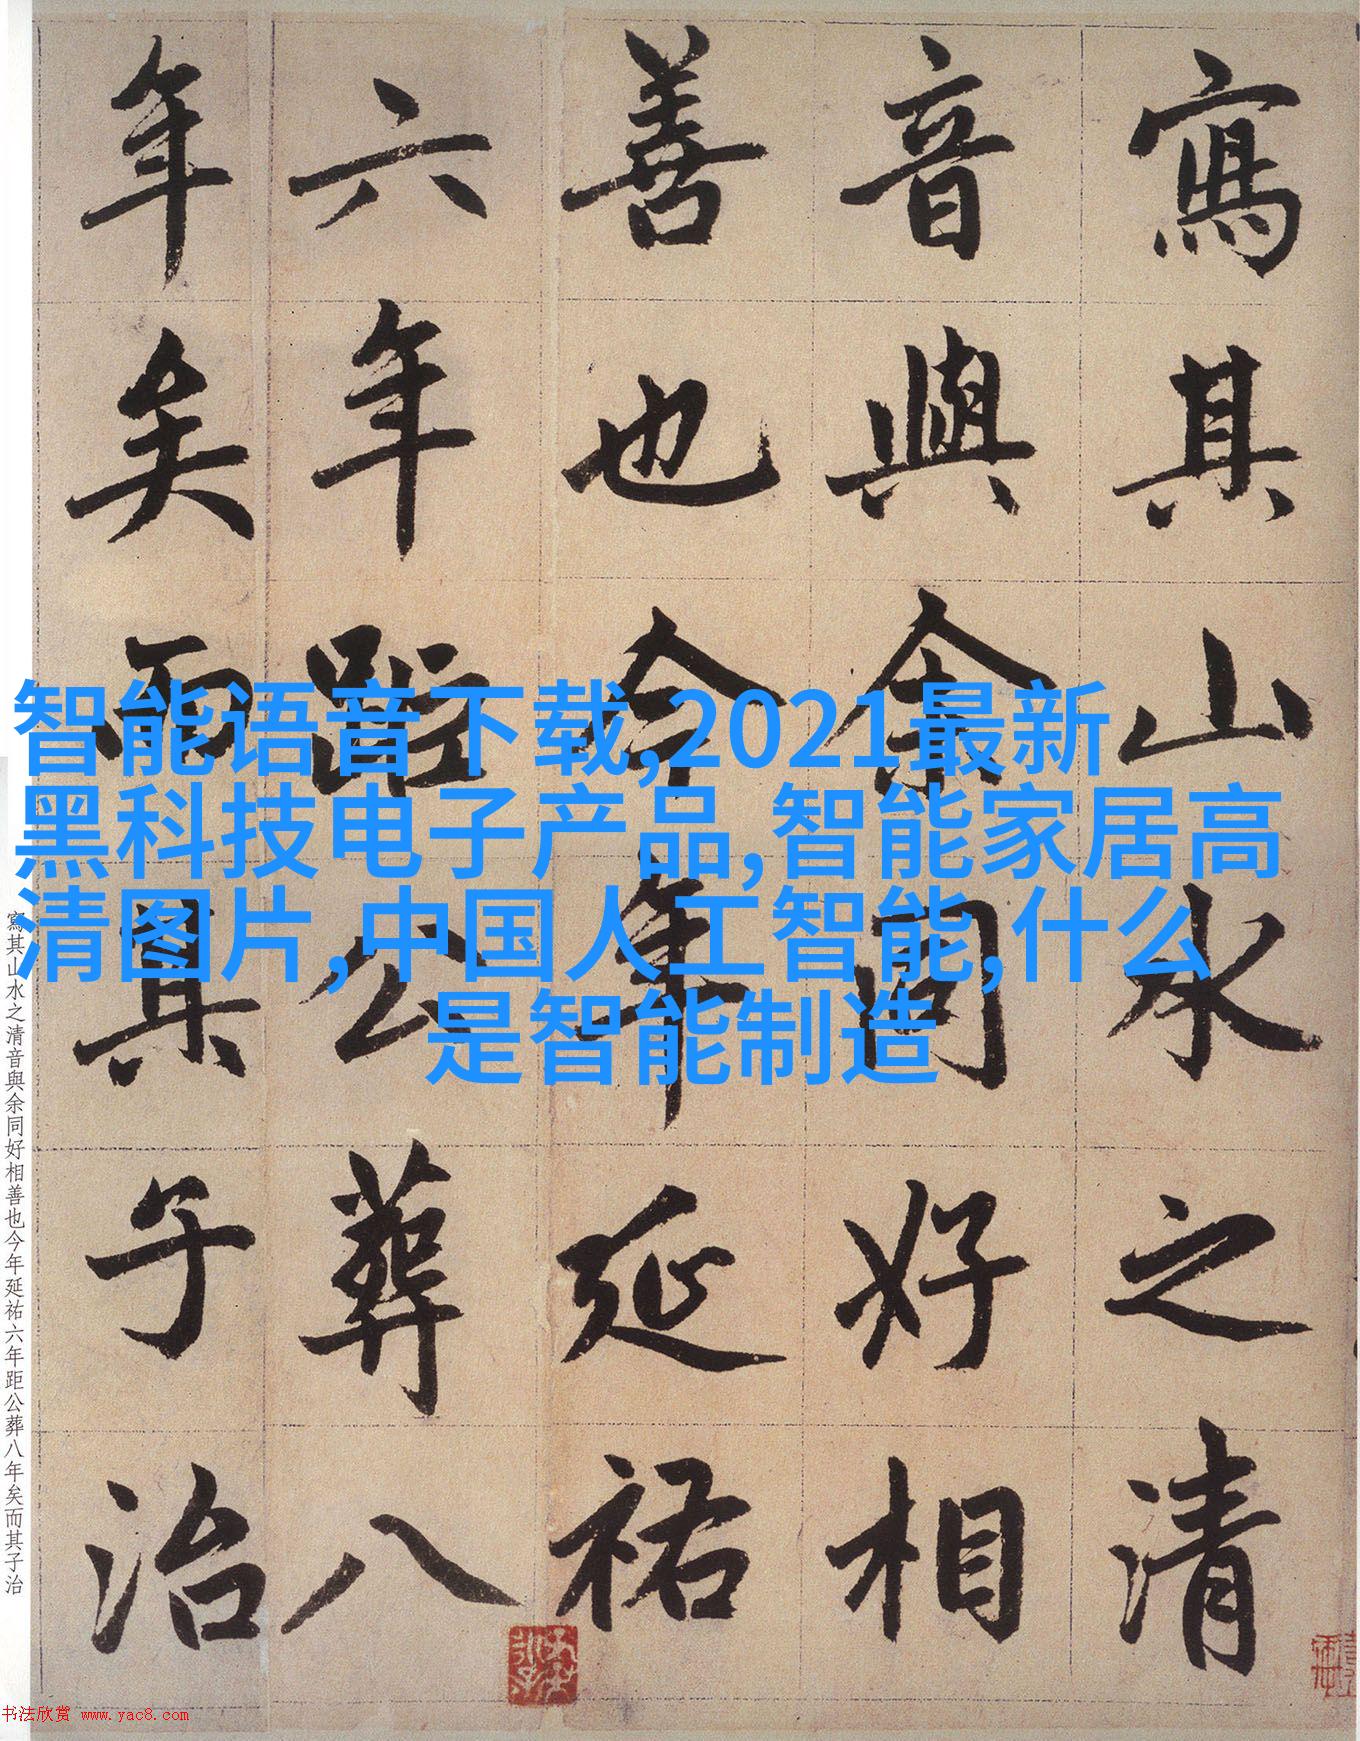 寫其山水之清
音與余同好相
善也今年延祐
六年距公葬八
年矣而其子治
智能语音下载,2021最新
黑科技电子产品,智能家居高
清图片,中国人工智能,什么
是智能制造
寫其山水之清音與余同好相善也今年延祐六年距公葬八年矣而其子治
书法欣赏 www.yac8.com